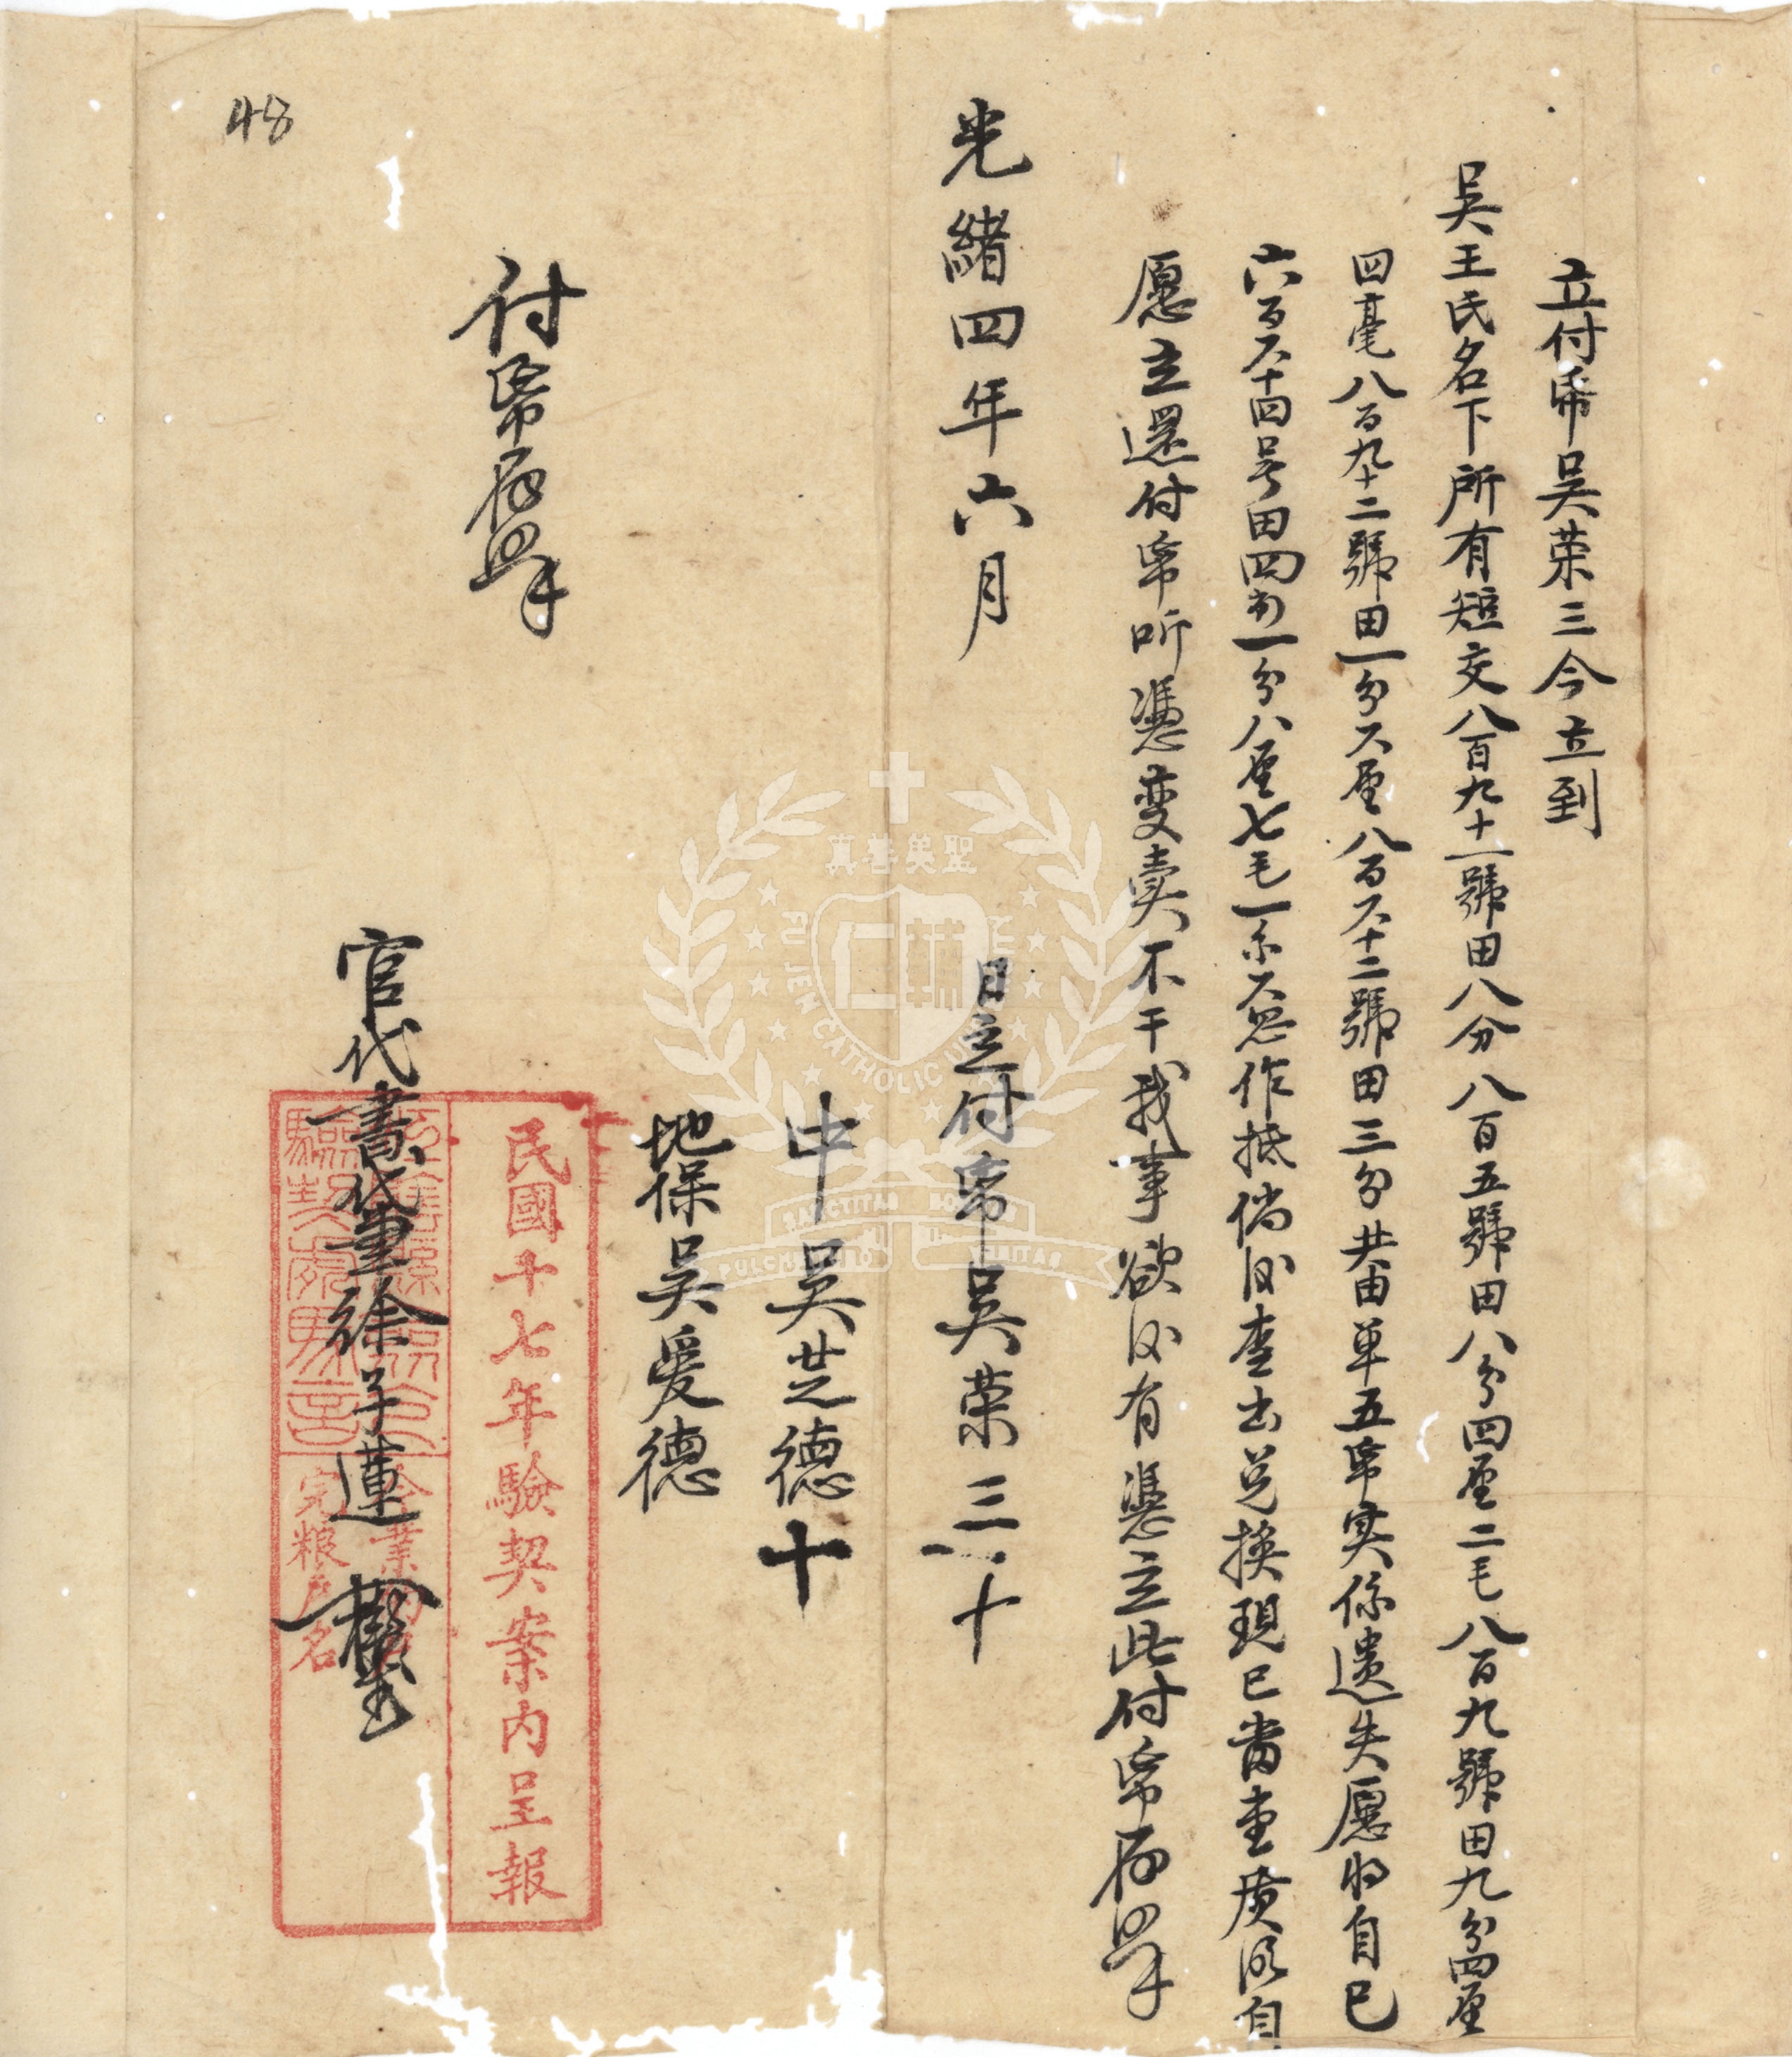 立付帋吴荣三今立到
吴王氏名下所有短交八百九十一號田八分八百五號田八分四厘二毛八百九號田九分四厘
四毫八百九十二號田一分六厘八百六十二號田三分共田单五帋实係遗失愿将自己
六百六十四号田四分一分八厘七毛一糸六忽作抵倘後查出兑换現已當堂廣訊自
愿立還付帋听凴变卖不干我事欲後有凴立此付帋存擧
光緒四年六月 日立付帋吴荣三十
中吴芝德十
地保吴爱德
付帋存擧
官代書代筆徐子蓮
民國十七年驗契案内呈報
驗契
完粮户名
業
48
聖美善真
FU JEN CATHOLIC
SANCTITAS BONITAS
PULCHRITUDO VERITAS